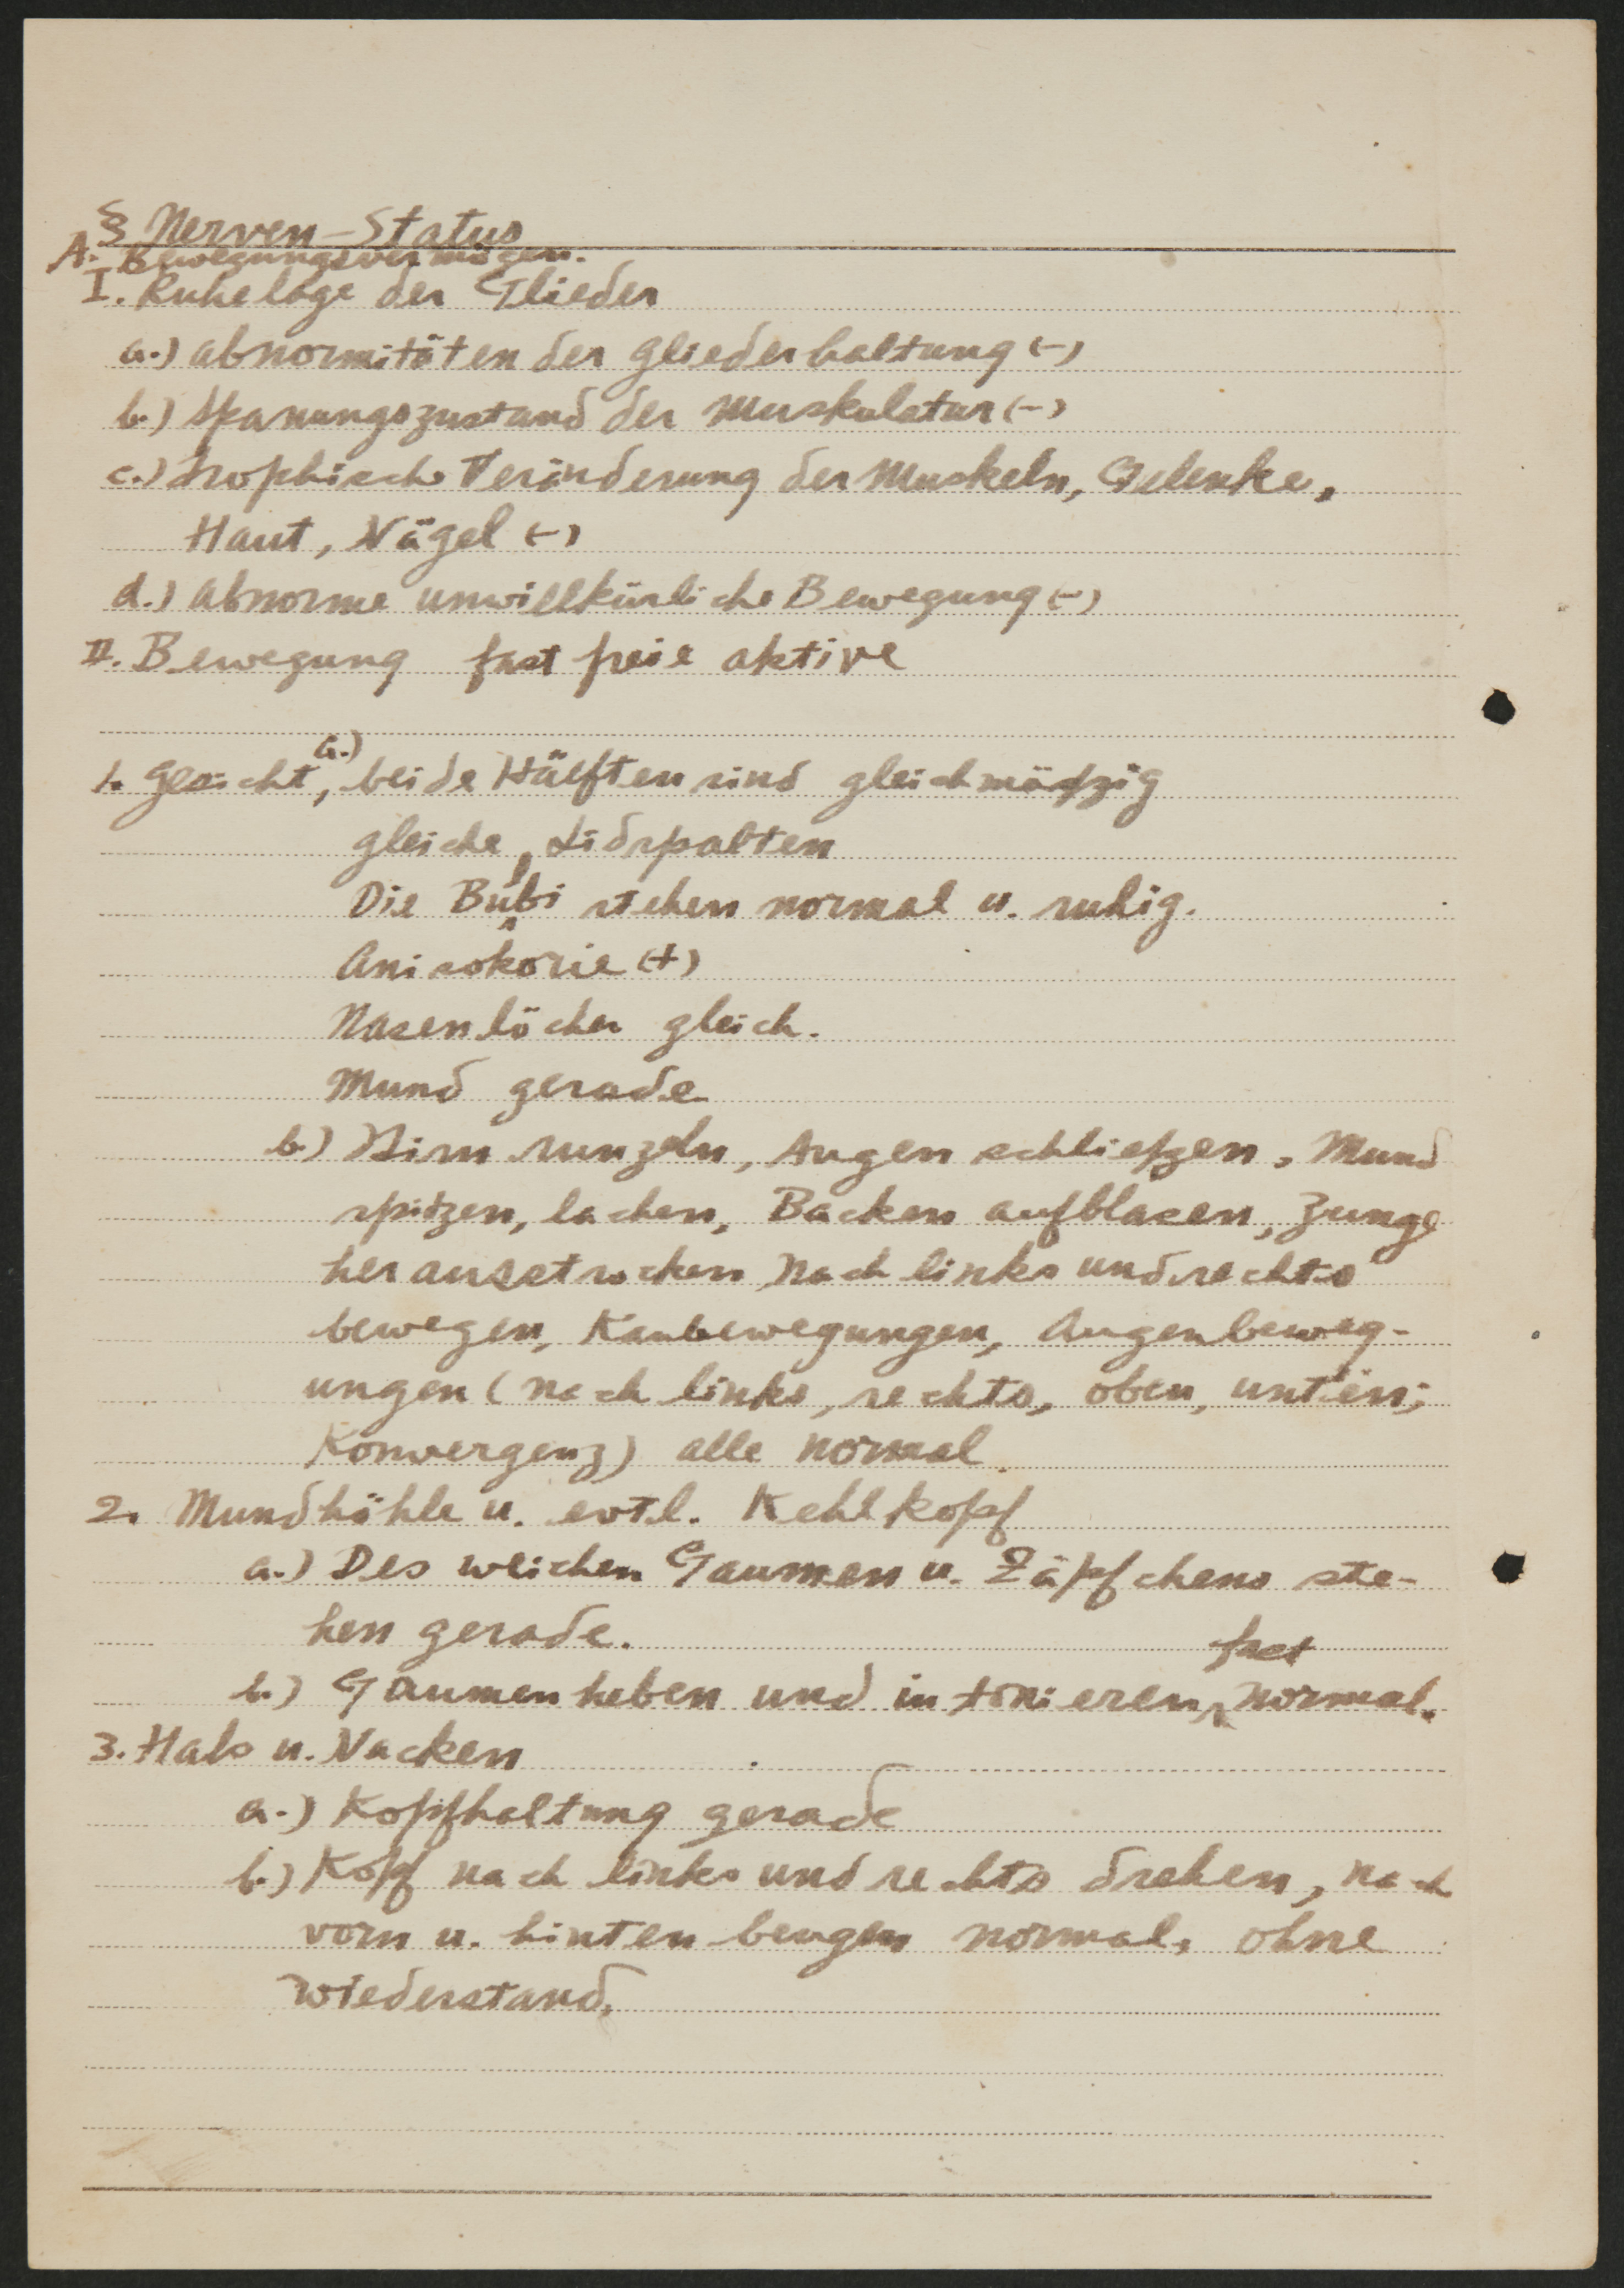 § Nerven-Status
A. Bewegungsvermögen.
I. Ruhelage der Glieder
a.) abnormitäten der gliederhaltung (-)
b.) Spanungszustand der Muskulatur (-)
c.) trophische Veränderung der Muskeln, Gelenke,
Haut, Nägel (-)
d.) abnorme unwillkürliche Bewegung (-)
II. Bewegung fast freie aktive
1. Gesicht, a.) beide Hälften sind gleichmäszig
gleiche Lidspalten
Die Bulbi stehen normal u. ruhig.
Anisokorie (+)
Nasenlöcher gleich.
Mund gerade
b.) Stirn runzeln, Augen schlieszen, Mund
spitzen, lachen, Backen aufblasen, Zunge
herausstrecken nach links und rechts
bewegen, Kaubewegungen, Augenbeweg-
ungen (nach links, rechts, oben, unten;
Konvergenz) alle normal
2. Mundhöhle u. evtl. Kehlkopf
a.) Des weichen Gaumen u. Zäpfchens ste-
hen gerade.
b.) Gaumen heben und intonieren fast normal.
3. Hals u. Nacken
a.) Kopfhaltung gerade
b.) Kopf nach links und rechts drehen, nach
vorn u. hinten beugen normal, ohne
Wiederstand.